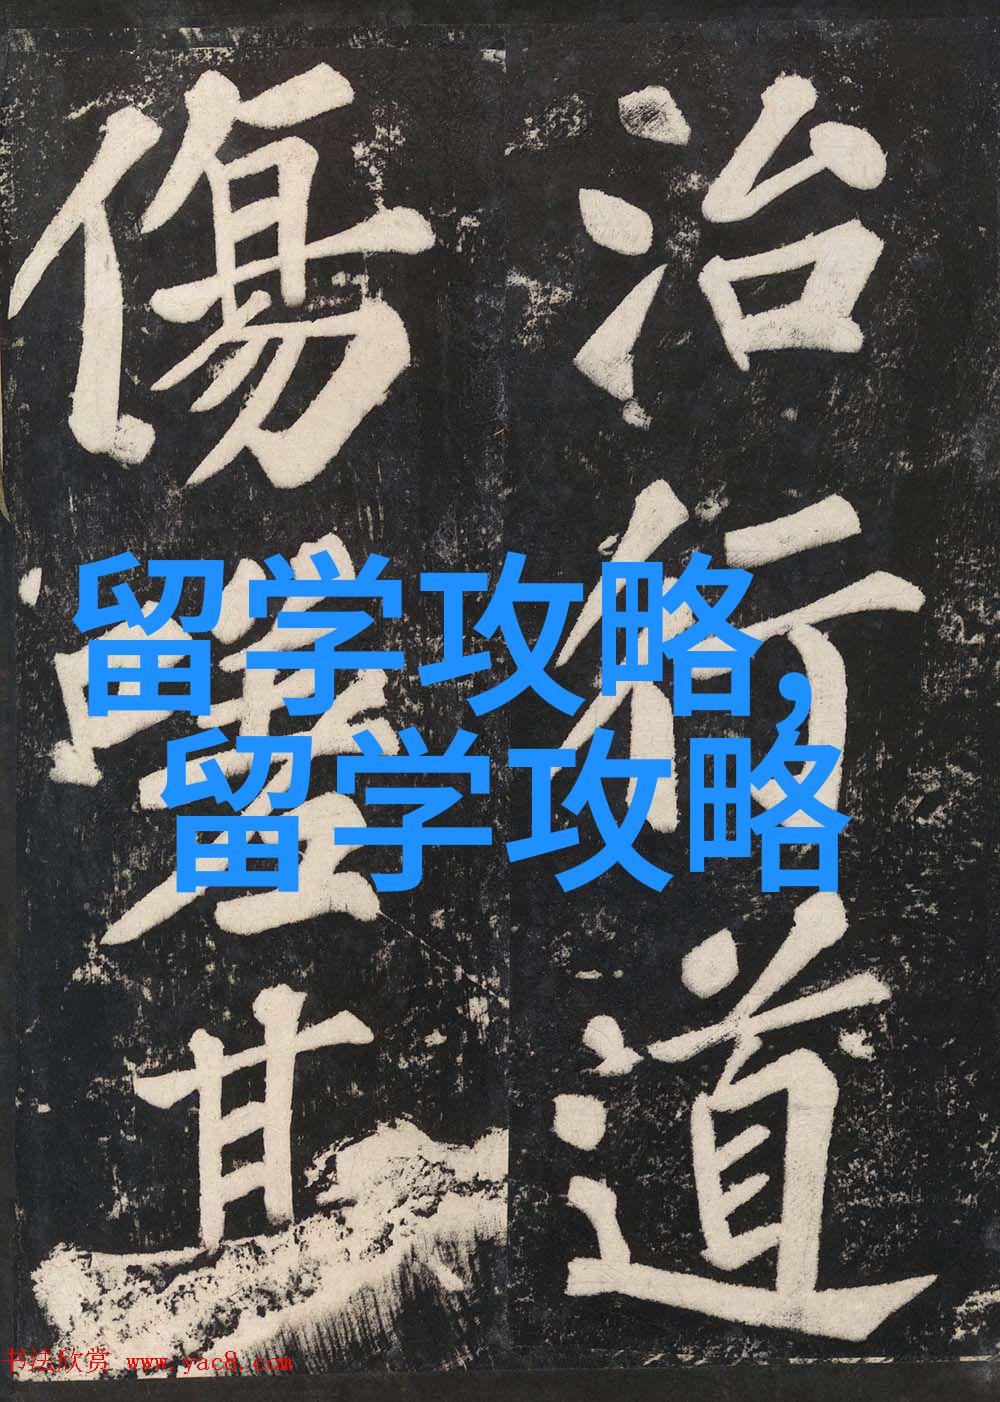 治行道
傷
其
留学攻略，
留学攻略
书法欣赏 www.yac8.com